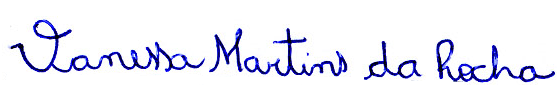 Vanessa Martins da Rocha